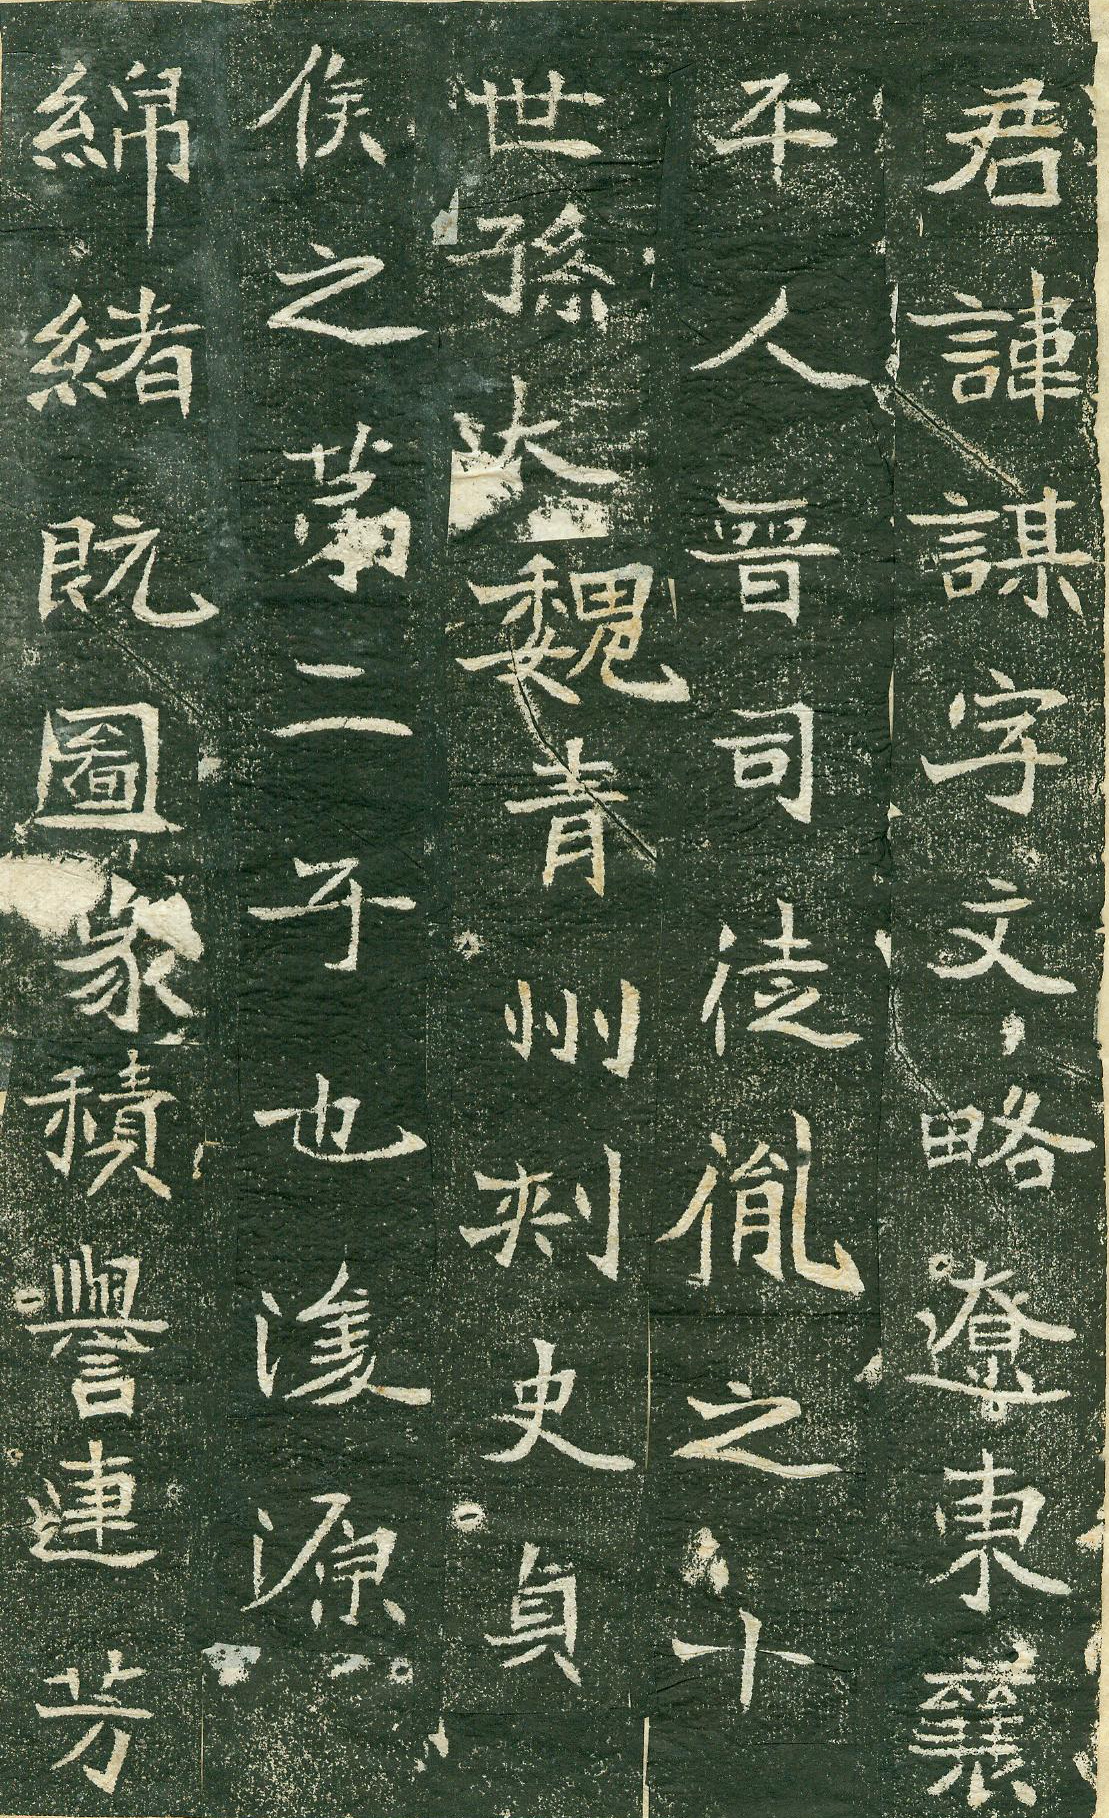 君諱諆字文略遼東襄
平人晉司徒胤之十
世孫大魏青州刾史貞
侯之苐二子也濬源
綿緒旣圖篆積譽連芳